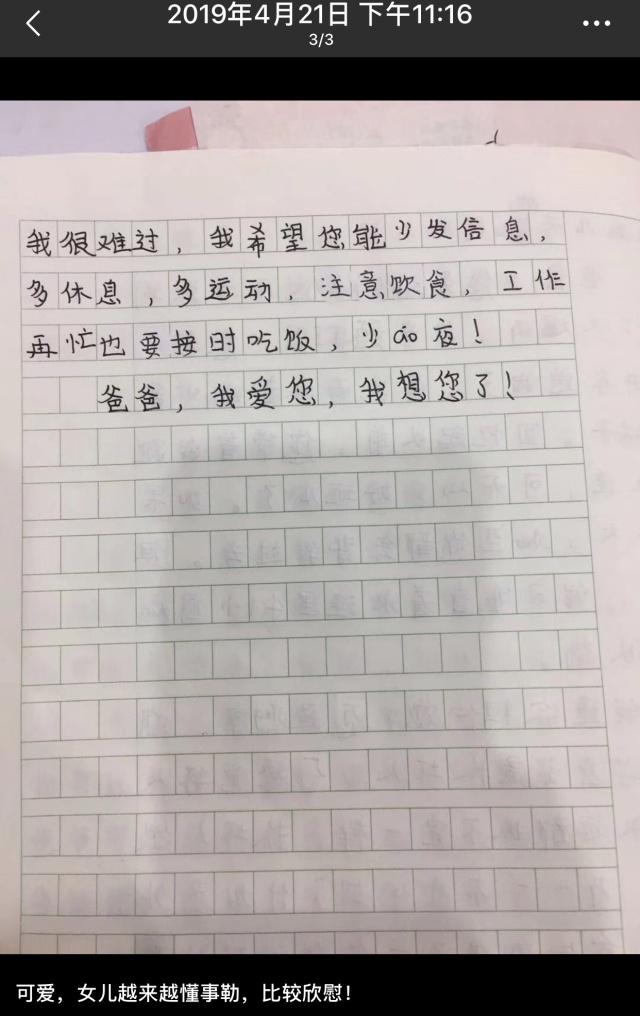 2019年4月21日 下午11:16
3/3
我很难过，我希望您能少发信息，
多休息，多运动，注意饮食，工作
再忙也要按时吃饭，少āo夜！
爸爸，我爱您，我想您了！
可爱，女儿越来越懂事勒，比较欣慰！